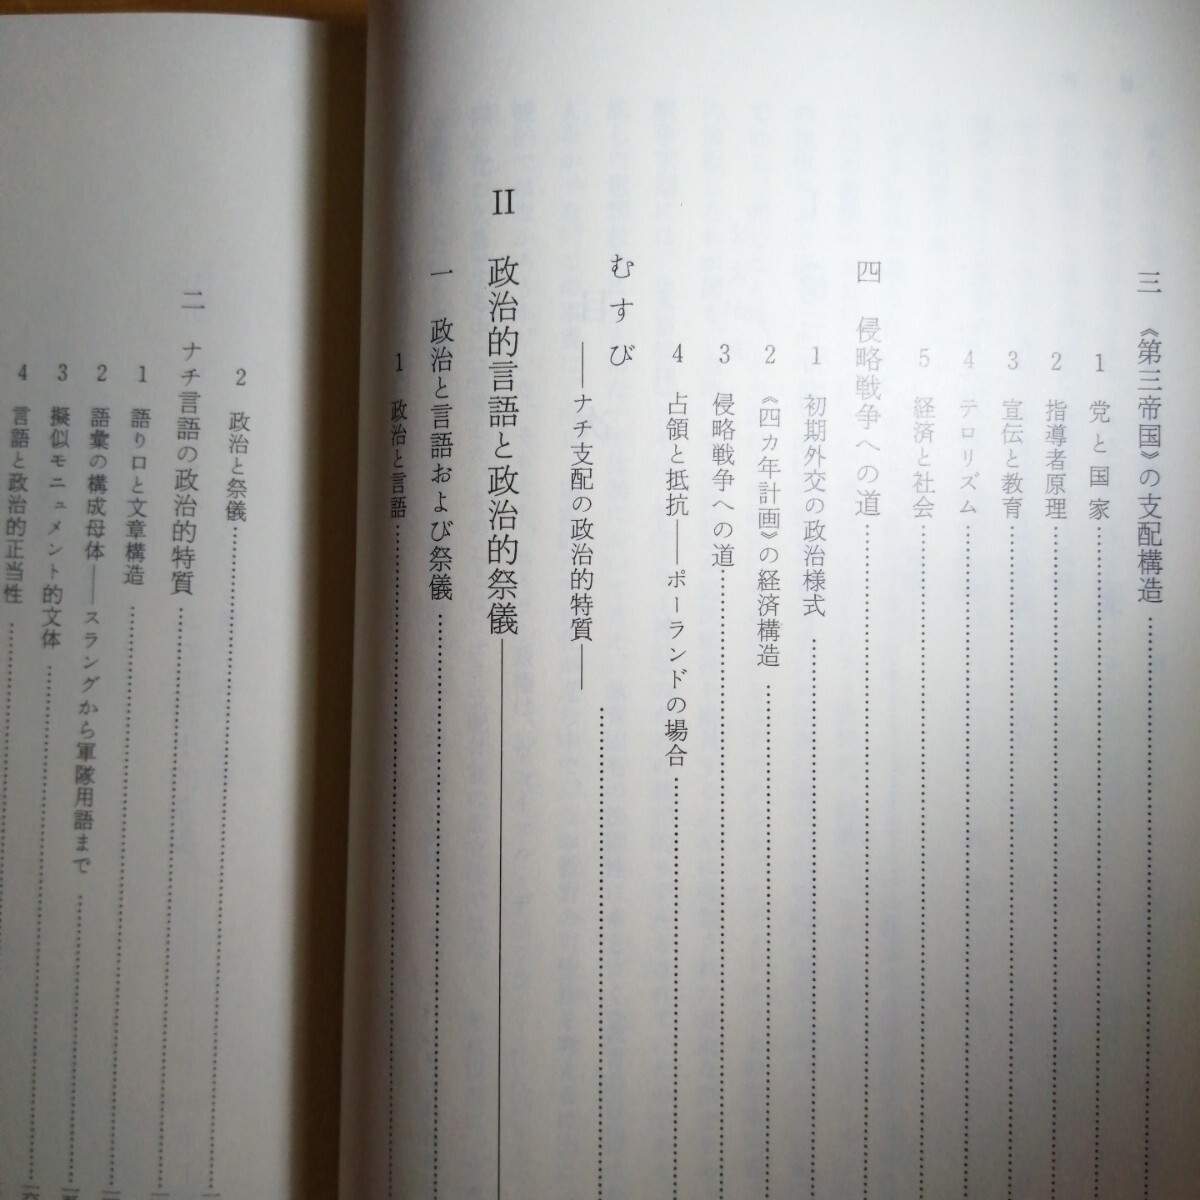 三 《第三帝国》の支配構造
1 党と国家
2 指導者原理
3 宣伝と教育
4 テロリズム
5 経済と社会
四 侵略戦争への道
1 初期外交の政治様式
2 《四カ年計画》の経済構造
3 侵略戦争への道
4 占領と抵抗――ポーランドの場合
むすび
――ナチ支配の政治的特質――
II 政治的言語と政治的祭儀
一 政治と言語および祭儀
1 政治と言語
2 政治と祭儀
二 ナチ言語の政治的特質
1 語り口と文章構造
2 語彙の構成母体――スラングから軍隊用語まで
3 擬似モニュメント的文体
4 言語と政治的正当性